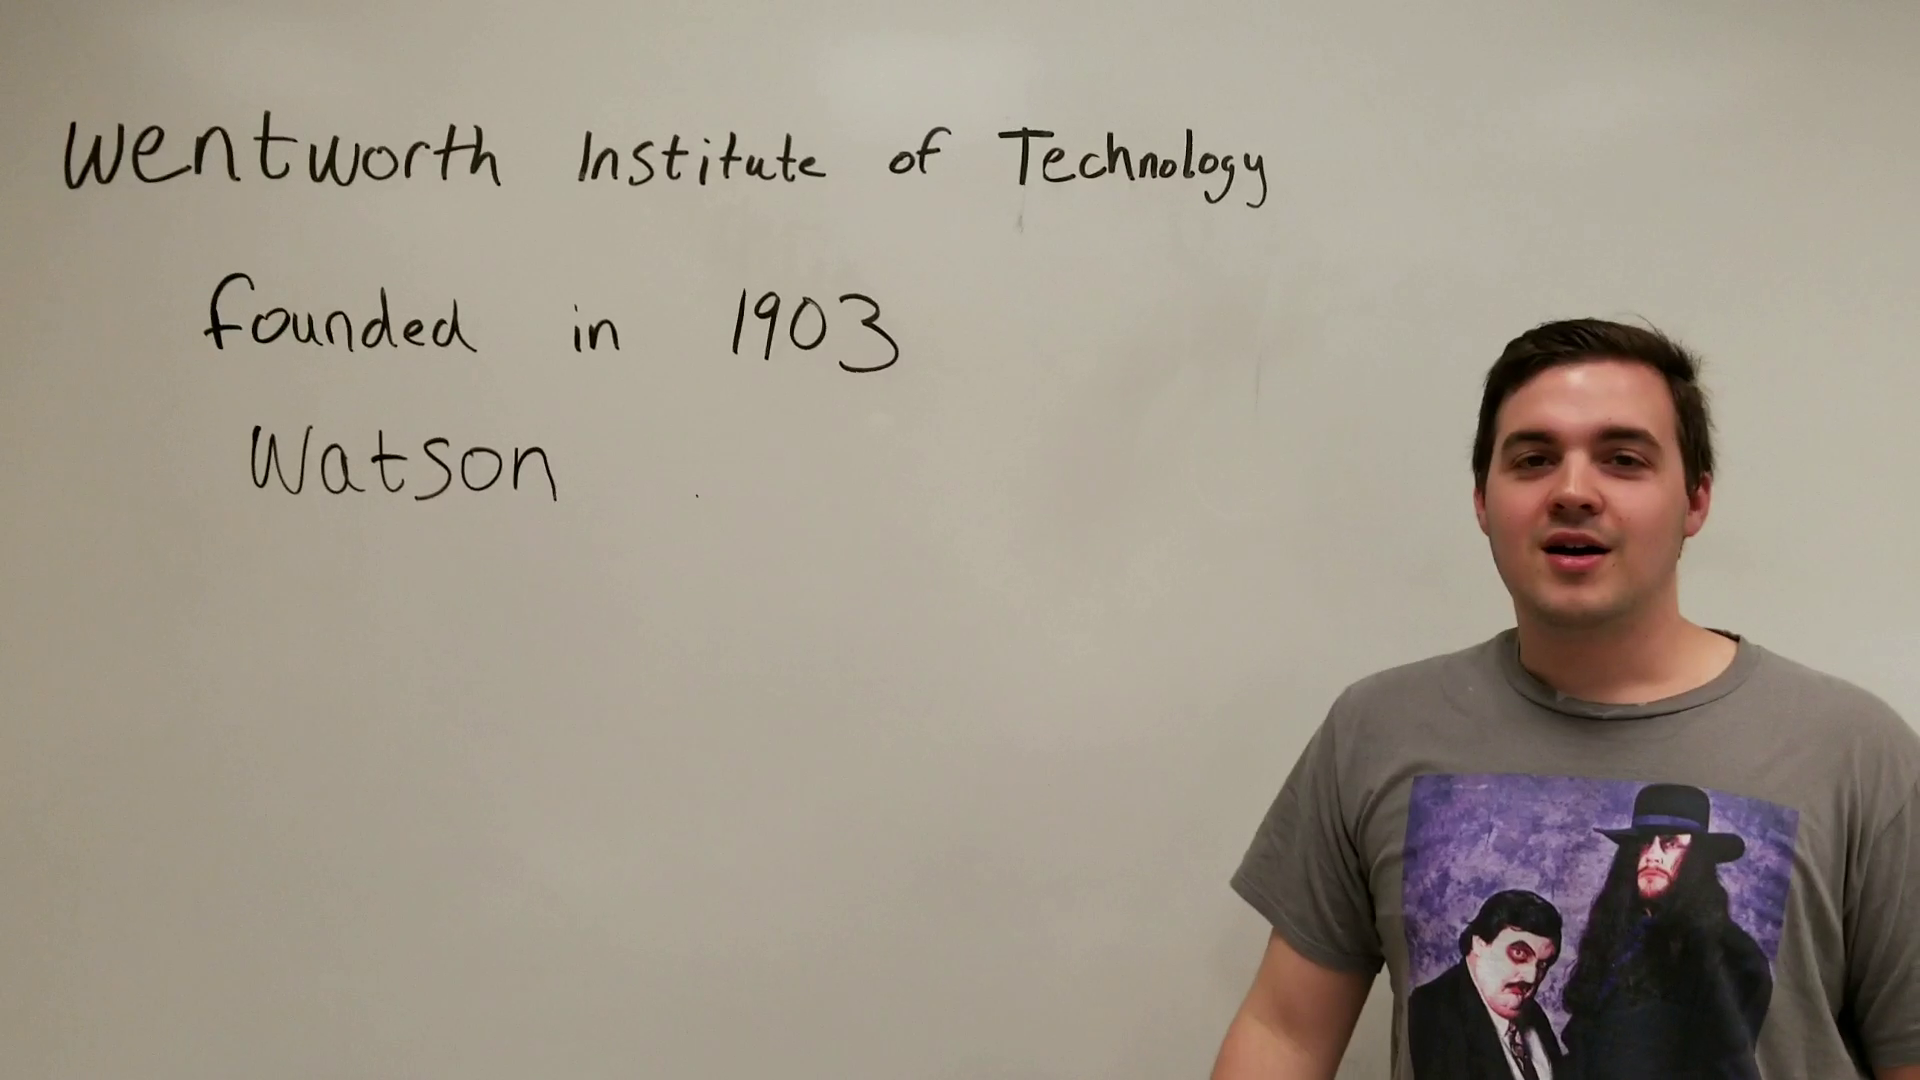 Wentworth Institute of Technology
founded in 1903
Watson